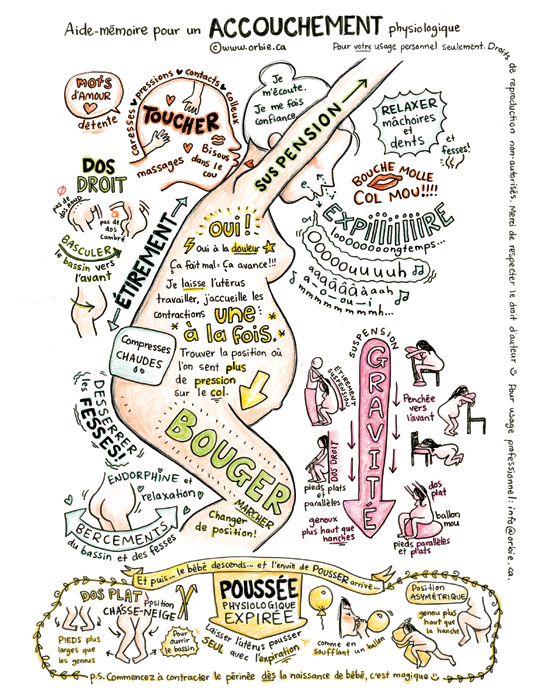 Aide-mémoire pour un ACCOUCHEMENT physiologique
©www.orbie.ca
Pour votre usage personnel seulement. Droits de reproduction non-autorisés. Merci de respecter le droit d'auteur ☺ Pour usage professionnel: info@orbie.ca.
MOTS
d'AMOUR
détente
caresses ♥ pressions ♥ contacts ♥ colleux
TOUCHER
massages
Bisous
dans le
cou
Je
m'écoute.
Je me fais
confiance.
SUSPENSION
RELAXER
mâchoires
et
dents
et
fesses!
BOUCHE MOLLE
COL MOU!!!!
DOS
DROIT
pas de
dos rond
pas de
dos
cambré
BASCULER
le bassin vers
l'avant
ÉTIREMENT
EXPIIIIIIIRE
looooooooongtemps...
OOooouuuuh
aaaâââàaah
a-o-ou-i
mmmmmmmmh...
OUI!
Oui à la douleur
Ça fait mal = Ça avance!!!
Je laisse l'utérus
travailler, j'accueille les
contractions une
à la fois.
Trouver la position où
l'on sent plus
de pression
sur le col.
Compresses
CHAUDES
DESSERRER
les FESSES!
BOUGER
MARCHER
Changer
de position!
ENDORPHINE et
relaxation
BERCEMENTS
du bassin et des fesses
SUSPENSION
GRAVITÉ
ÉTIREMENT
SUSPENSION
Penchée
vers
l'avant
DOS DROIT
pieds plats
et
parallèles
genoux
plus haut que
hanches
dos
plat
ballon
mou
pieds parallèles
et plats
Et puis... le bébé descends... et l'envie de POUSSER arrive...
DOS PLAT
Position
CHASSE-NEIGE
PIEDS plus
larges que
les genoux
Pour
ouvrir
le bassin
POUSSÉE
PHYSIOLOGIQUE
EXPIRÉE
Laisser l'utérus pousser
SEUL avec l'expiration
comme en
soufflant un ballon
Position
ASYMÉTRIQUE
genou plus
haut que
la hanche
p.s. Commencez à contracter le périnée dès la naissance de bébé, c'est magique ☺